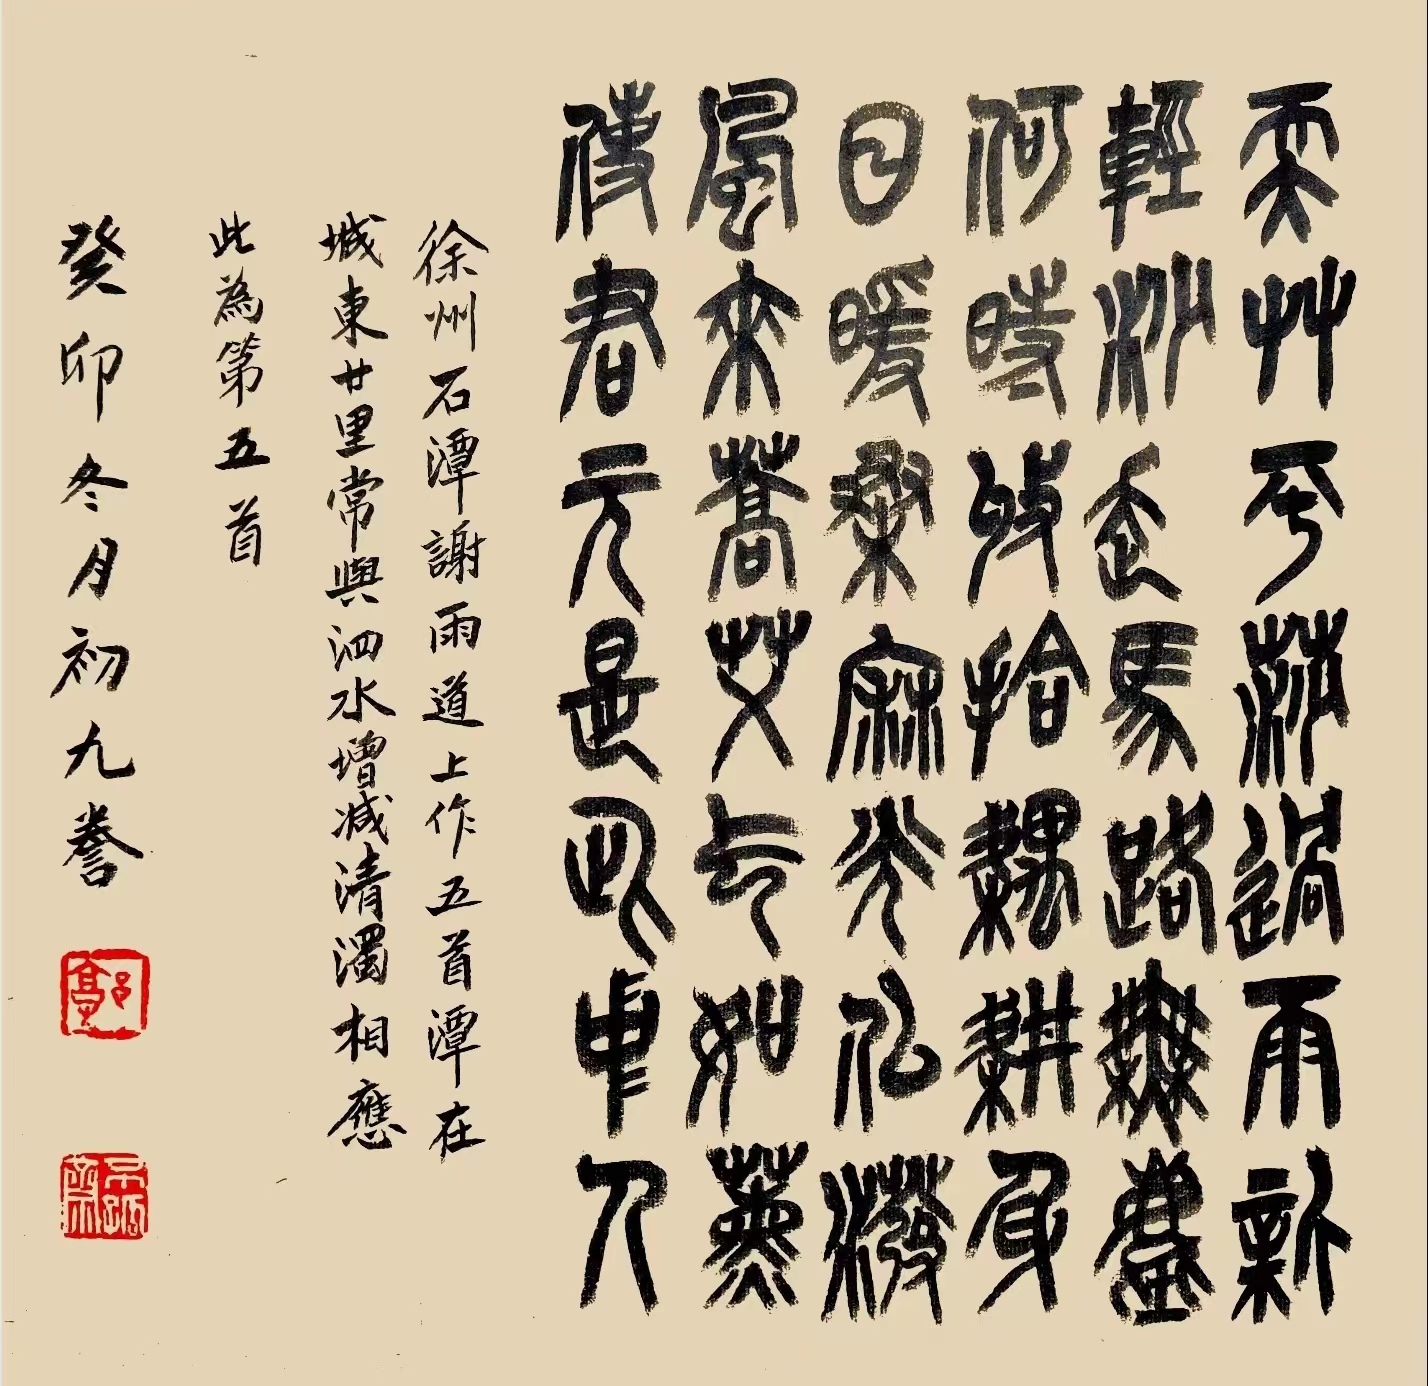 耎艸平莎過雨新
輕沙走馬路無塵
何時收拾耦耕身
日暖桑麻光似潑
風來蒿艾气如薰
使君元是此中人
徐州石潭謝雨道上作五首潭在
城東廿里常與泗水增減清濁相應
此為第五首
癸卯冬月初九誊